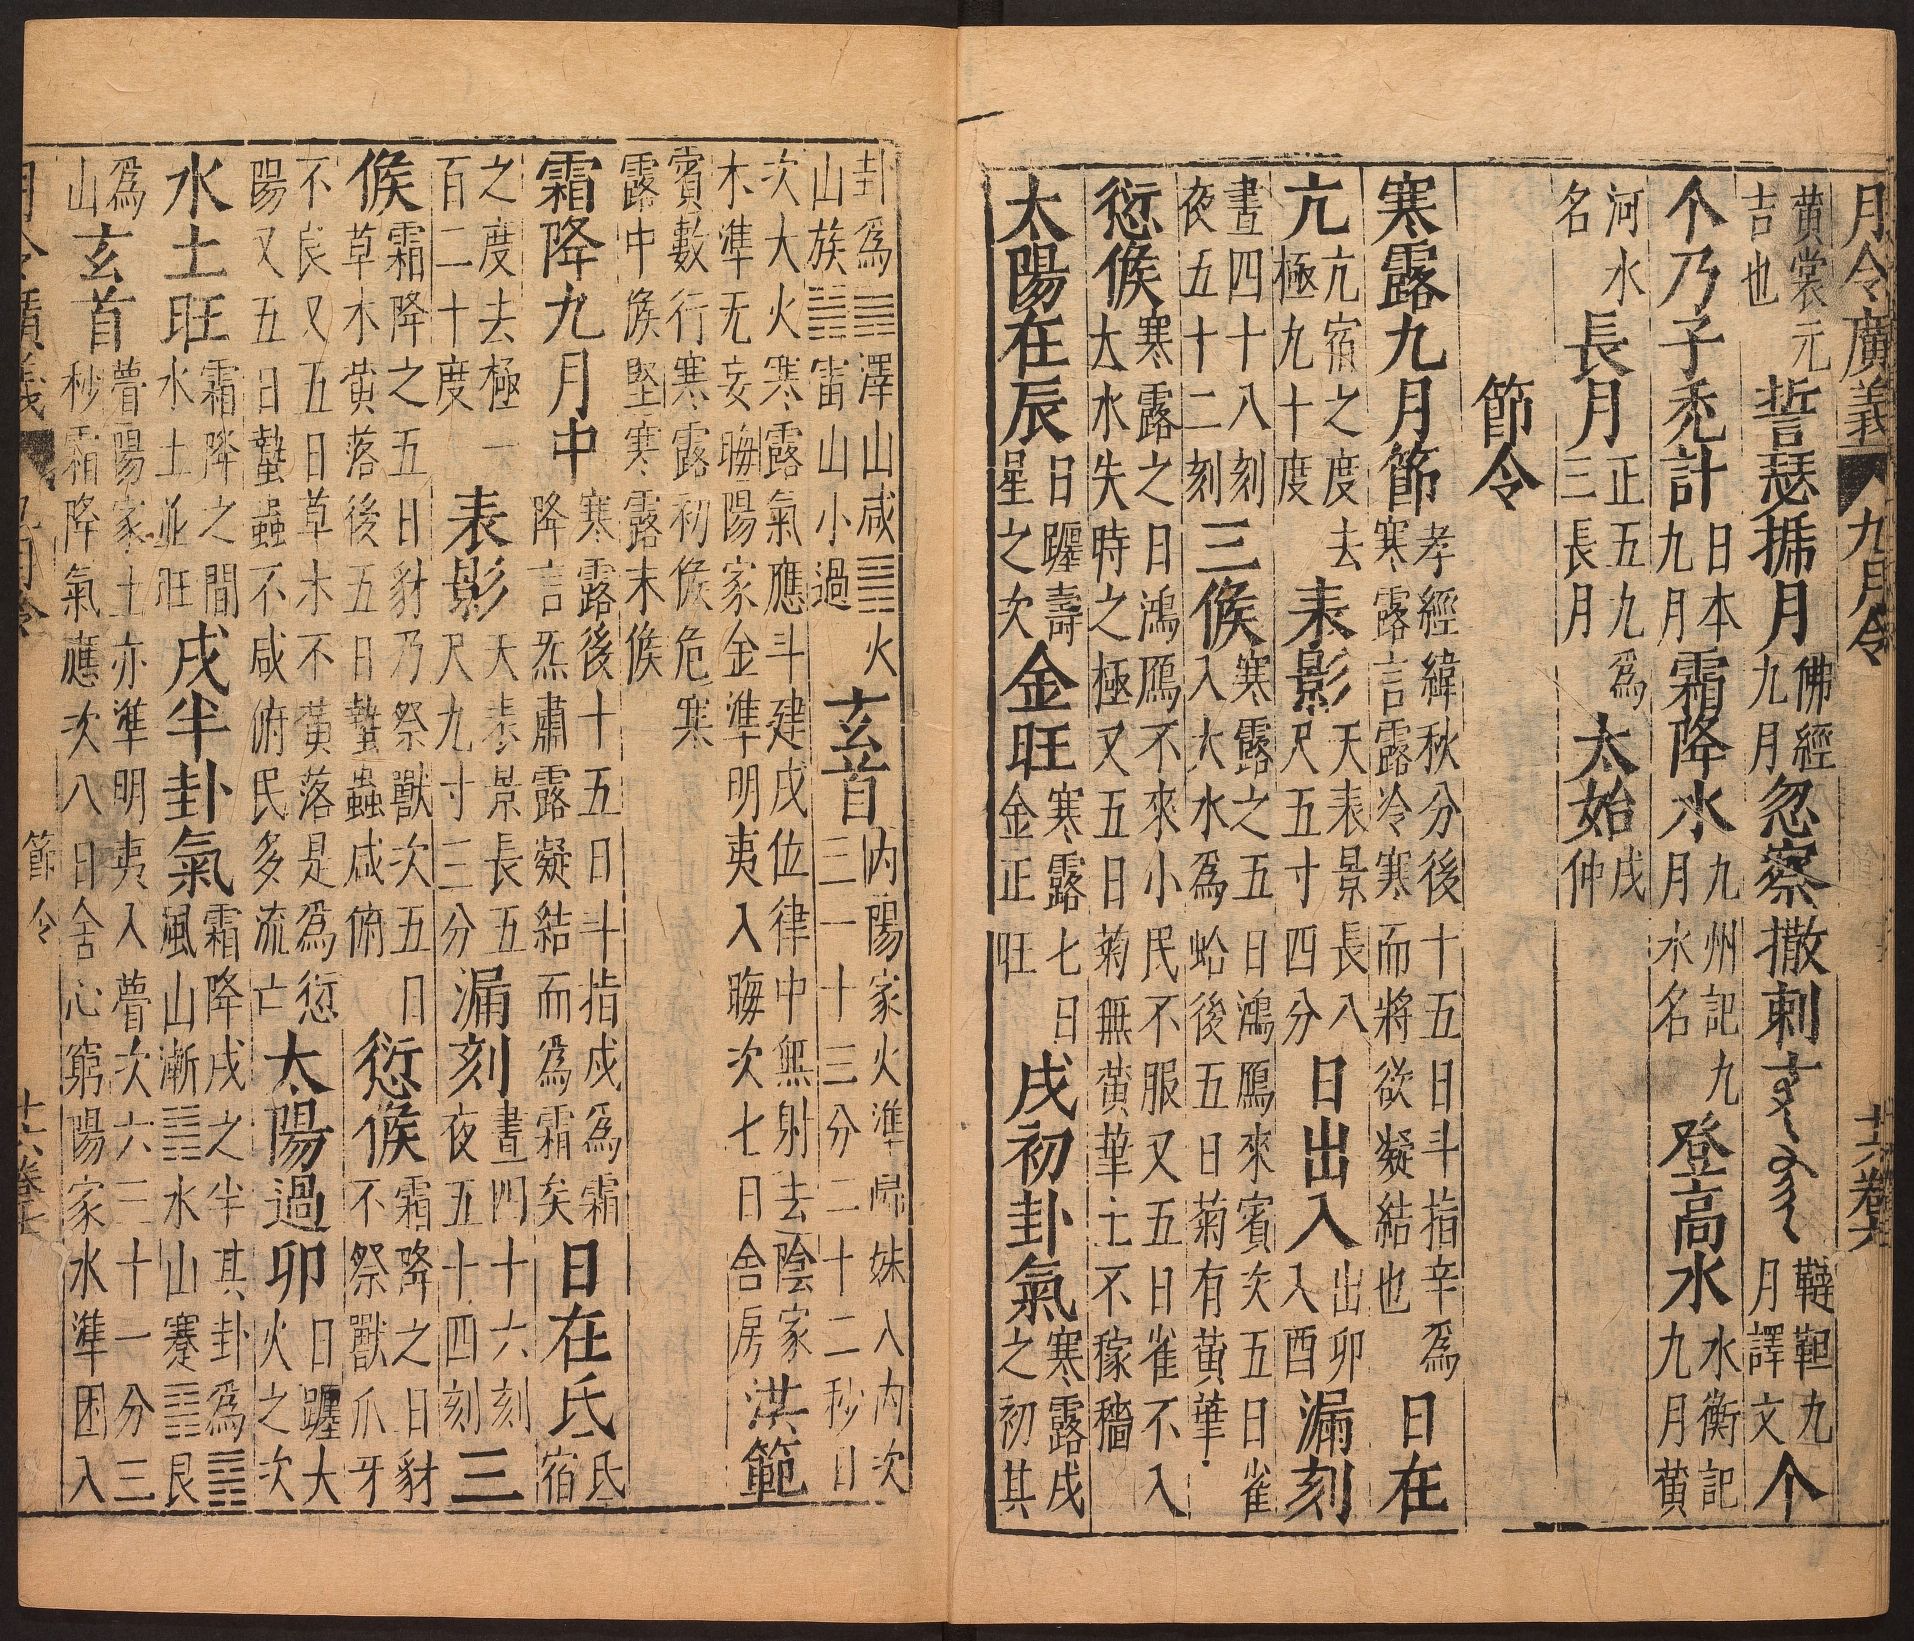 月令廣義 九月令
黃裳元吉也 誓瑟月 佛經九月 忽察撒剌 韃靼九月譯文 个
个乃子禿計 日本九月 霜降水 九州記九月水名 登高水 水衡記九月黃
河水名 長月 正五九爲三長月 太始 戌仲
節令
寒露九月節 孝經緯秋分後十五日斗指辛爲寒露言露冷寒而將欲凝結也 日在
亢 亢宿之度去極九十度 表影 天表景長八尺五寸四分 日出入 出卯入酉 漏刻
晝四十八刻夜五十二刻 三候 寒露之五日鴻鴈來賓次五日雀入大水爲蛤後五日菊有黃華
愆候 寒露之日鴻鴈不來小民不服又五日雀不入大水失時之極又五日菊無黃華土不稼穡
太陽在辰 日躔壽星之次 金旺 寒露七日金正旺 戌初卦氣 寒露戌之初其
卦爲䷞澤山咸䷷火山旅䷽雷山小過 玄首 內陽家火準歸妹入內次三一十三分二十二秒日
次大火寒露氣應斗建戌位律中無射去陰家木準无妄晦陽家金準明夷入晦次七日舍房 洪範
賓數行寒露初候危寒露中候堅寒露末候
霜降九月中 寒露後十五日斗指戌爲霜降言炁肅露凝結而爲霜矣 日在氐 氐宿
之度去極一百二十度 表影 天表景長五尺九寸三分 漏刻 晝四十六刻夜五十四刻 三
候 霜降之五日豺乃祭獸次五日草木黃落後五日蟄蟲咸俯 愆候 霜降之日豺不祭獸爪牙
不良又五日草木不黃落是爲愆陽又五日蟄蟲不咸俯民多流亡 太陽過卯 日躔大火之次
水土旺 霜降之間水土並旺 戌半卦氣 霜降戌之半其卦爲䷴風山漸䷦水山蹇䷳艮
爲山 玄首 瞢陽家土亦準明夷入瞢次六三十一分三秒霜降氣應次八日舍心窮陽家水準困入
月令廣義 九月令 節令